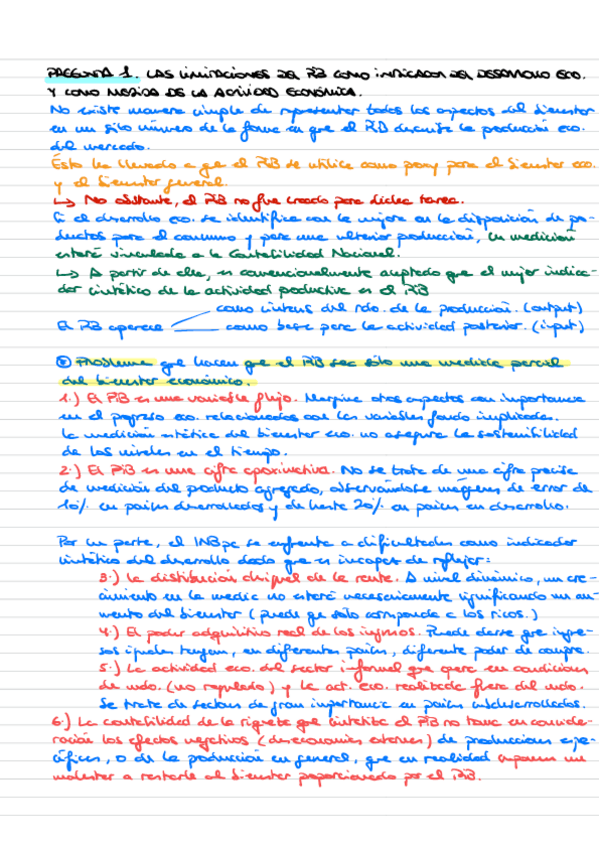 PREGUNTA 1. LAS LIMITACIONES DEL PIB COMO INDICADOR DEL DESARROLLO ECO.
Y COMO MEDIDA DE LA ACTIVIDAD ECONÓMICA.
No existe manera simple de representar todos los aspectos del bienestar
en un sólo número de la forma en que el PIB describe la producción eco.
del mercado.
Ésto ha llevado a que el PIB se utilice como proxy para el bienestar eco.
y el bienestar general.
↳ No obstante, el PIB no fue creado para dicha tarea.
Si el desarrollo eco. se identifica con la mejora en la disposición de pro-
ductos para el consumo y para una ulterior producción, su medición
estará vinculada a la Contabilidad Nacional.
↳ A partir de ella, es convencionalmente aceptado que el mejor indica-
dor sintético de la actividad productiva es el PIB
como síntesis del rdo. de la producción. (output)
El PIB aparece
como base para la actividad posterior. (input)
Problemas que hacen que el PIB sea sólo una medida parcial
del bienestar económico.
1.) El PIB es una variable flujo. Margina otros aspectos con importancia
en el progreso eco. relacionados con las variables fondo implicadas.
La medición estática del bienestar eco. no asegura la sostenibilidad
de los niveles en el tiempo.
2.) El PIB es una cifra aproximativa. No se trata de una cifra precisa
de medición del producto agregado, observándose márgenes de error de
10% en países desarrollados y de hasta 20% en países en desarrollo.
Por su parte, el INBpc se enfrenta a dificultades como indicador
sintético del desarrollo dado que es incapaz de reflejar:
3.) La distribución desigual de la renta. A nivel dinámico, un cre-
cimiento en la media no estará necesariamente significando un au-
mento del bienestar (puede que sólo corresponda a los ricos.)
4.) El poder adquisitivo real de los ingresos. Puede darse que ingre-
sos iguales tengan, en diferentes países, diferente poder de compra.
5.) La actividad eco. del sector informal que opera en condiciones
de mdo. (no regulado) y la act. eco. realizada fuera del mdo.
Se trata de sectores de gran importancia en países subdesarrollados.
6.) La contabilidad de la riqueza que sintetiza el PIB no toma en conside-
ración los efectos negativos (deseconomías externas) de producciones espe-
cíficas, o de la producción en general, que en realidad suponen un
malestar a restarle al bienestar proporcionado por el PIB.